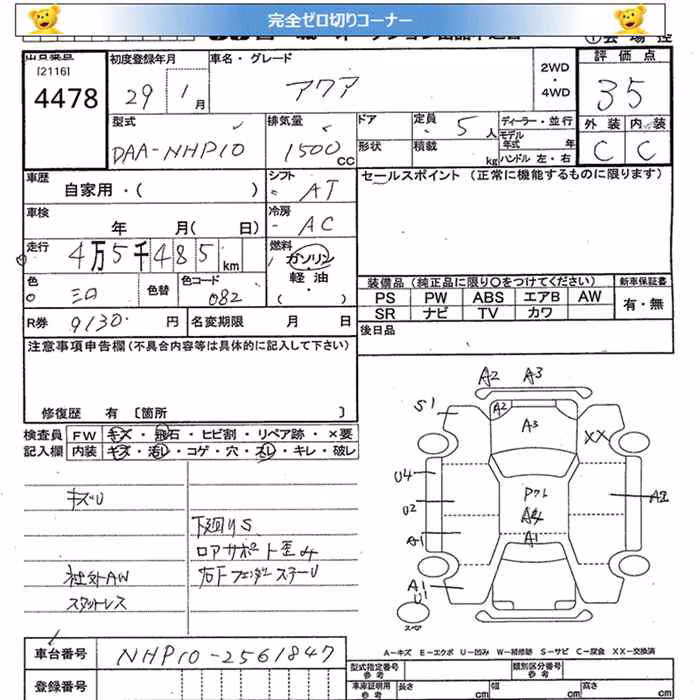 完全ゼロ切りコーナー
[2116]
4478
初度登録年月
29 1月
車名・グレード
アクア
2WD
・
4WD
評価点
35
型式
DAA-NHP10
排気量
1500cc
ドア
形状
定員
5人
積載
kg
ディーラー・並行
モデル
年式 年
ハンドル 左・右
外装 内装
C C
車歴
自家用・( )
シフト
AT
セールスポイント (正常に機能するものに限ります)
車検
年 月( 日)
冷房
AC
走行
4万5千485km
燃料
ガソリン
軽油
( )
色
色替
色コード
082
装備品 (純正品に限り○をつけてください)
新車保証書
PS PW ABS エアB AW
有・無
SR ナビ TV カワ
R券 9130 円
名変期限 月 日
後日品
注意事項申告欄 (不具合内容等は具体的に記入して下さい)
修復歴 有 [箇所 ]
検査員
記入欄
FW キズ・飛石・ヒビ割・リペア跡・×要
内装 キズ・汚レ・コゲ・穴・スレ・キレ・破レ
キズU
下廻りS
ロアサポート歪み
右下フェンダーステーU
社外AW
スタットレス
A2 A3
S1
A2
A3
XX
U4
U2
A2
A4
A1
A1
A1
U1
スペア
A-キズ E-エクボ U-凹み W-補修跡 S-サビ C-腐食 XX-交換済
車台番号 NHP10-2561847
登録番号
型式指定番号
参考
類別区分番号
参考
車庫証明用
参考
長さ cm
幅 cm
高さ cm